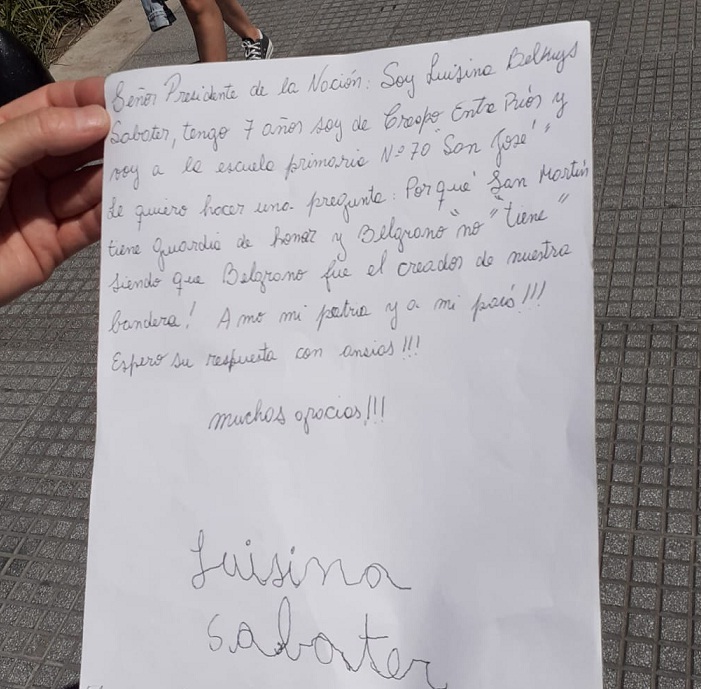 Señor Presidente de la Nación: Soy Luisina Belkys
Sabater, tengo 7 años soy de Crespo Entre Ríos y
voy a la escuela primaria Nº 70 "San José",
Le quiero hacer una pregunta: Porqué "San Martín
tiene guardia de honor y Belgrano "no" "tiene"
siendo que Belgrano fue el creador de nuestra
bandera! Amo mi patria y a mi país!!!
Espero su respuesta con ansias!!!
muchas gracias!!!
Luisina
Sabater